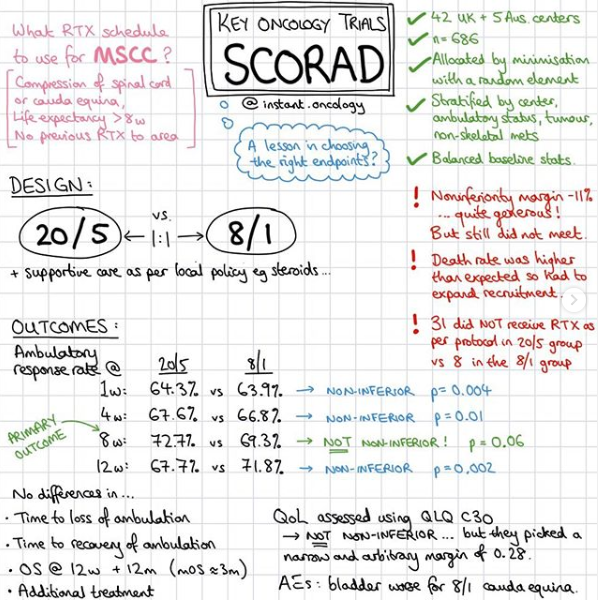 What RTX schedule
to use for MSCC?
Compression of spinal cord
or cauda equina,
Life expectancy >8w
No previous RTX to area
KEY ONCOLOGY TRIALS
SCORAD
@instant.oncology
A lesson in choosing
the right endpoints?
✓ 42 UK + 5 Aus. centers
✓ n=686
✓ Allocated by minimisation
with a random element
✓ Stratified by center,
ambulatory status, tumour,
non-skeletal mets
✓ Balanced baseline stats.
! Noninferiority margin -11%
... quite generous!
But still did not meet.
! Death rate was higher
than expected so had to
expand recruitment.
! 31 did NOT receive RTX as
per protocol in 20/5 group
vs 8 in the 8/1 group
DESIGN:
20/5 ← vs. 1:1 → 8/1
+ supportive care as per local policy eg steroids...
OUTCOMES:
Ambulatory
response rate @ 20/5 8/1
1w: 64.3% vs 63.9% → NON-INFERIOR p=0.004
4w: 67.6% vs 66.8% → NON-INFERIOR p=0.01
PRIMARY
OUTCOME
8w: 72.7% vs 69.3% → NOT NON-INFERIOR! p=0.06
12w: 67.7% vs 71.8% → NON-INFERIOR p=0.002
No differences in...
• Time to loss of ambulation
• Time to recovery of ambulation
• OS @ 12w + 12m (mOS ≈3m)
• Additional treatment
QoL assessed using QLQ C30
→ NOT NON-INFERIOR... but they picked a
narrow and arbitrary margin of 0.28.
AEs: bladder worse for 8/1 cauda equina.